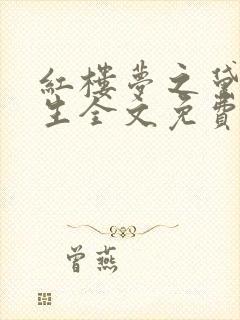 紅樓夢之黛
生全文免費
曾燕